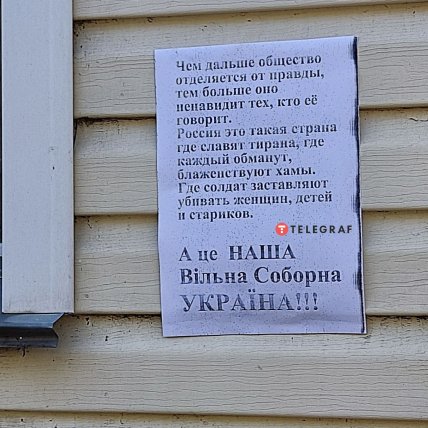 Чем дальше общество
отделяется от правды,
тем больше оно
ненавидит тех, кто её
говорит.
Россия это такая страна
где славят тирана, где
каждый обманут,
блаженствуют хамы.
Где солдат заставляют
убивать женщин, детей
и стариков.
TELEGRAF
А це НАША
Вільна Соборна
УКРАЇНА!!!